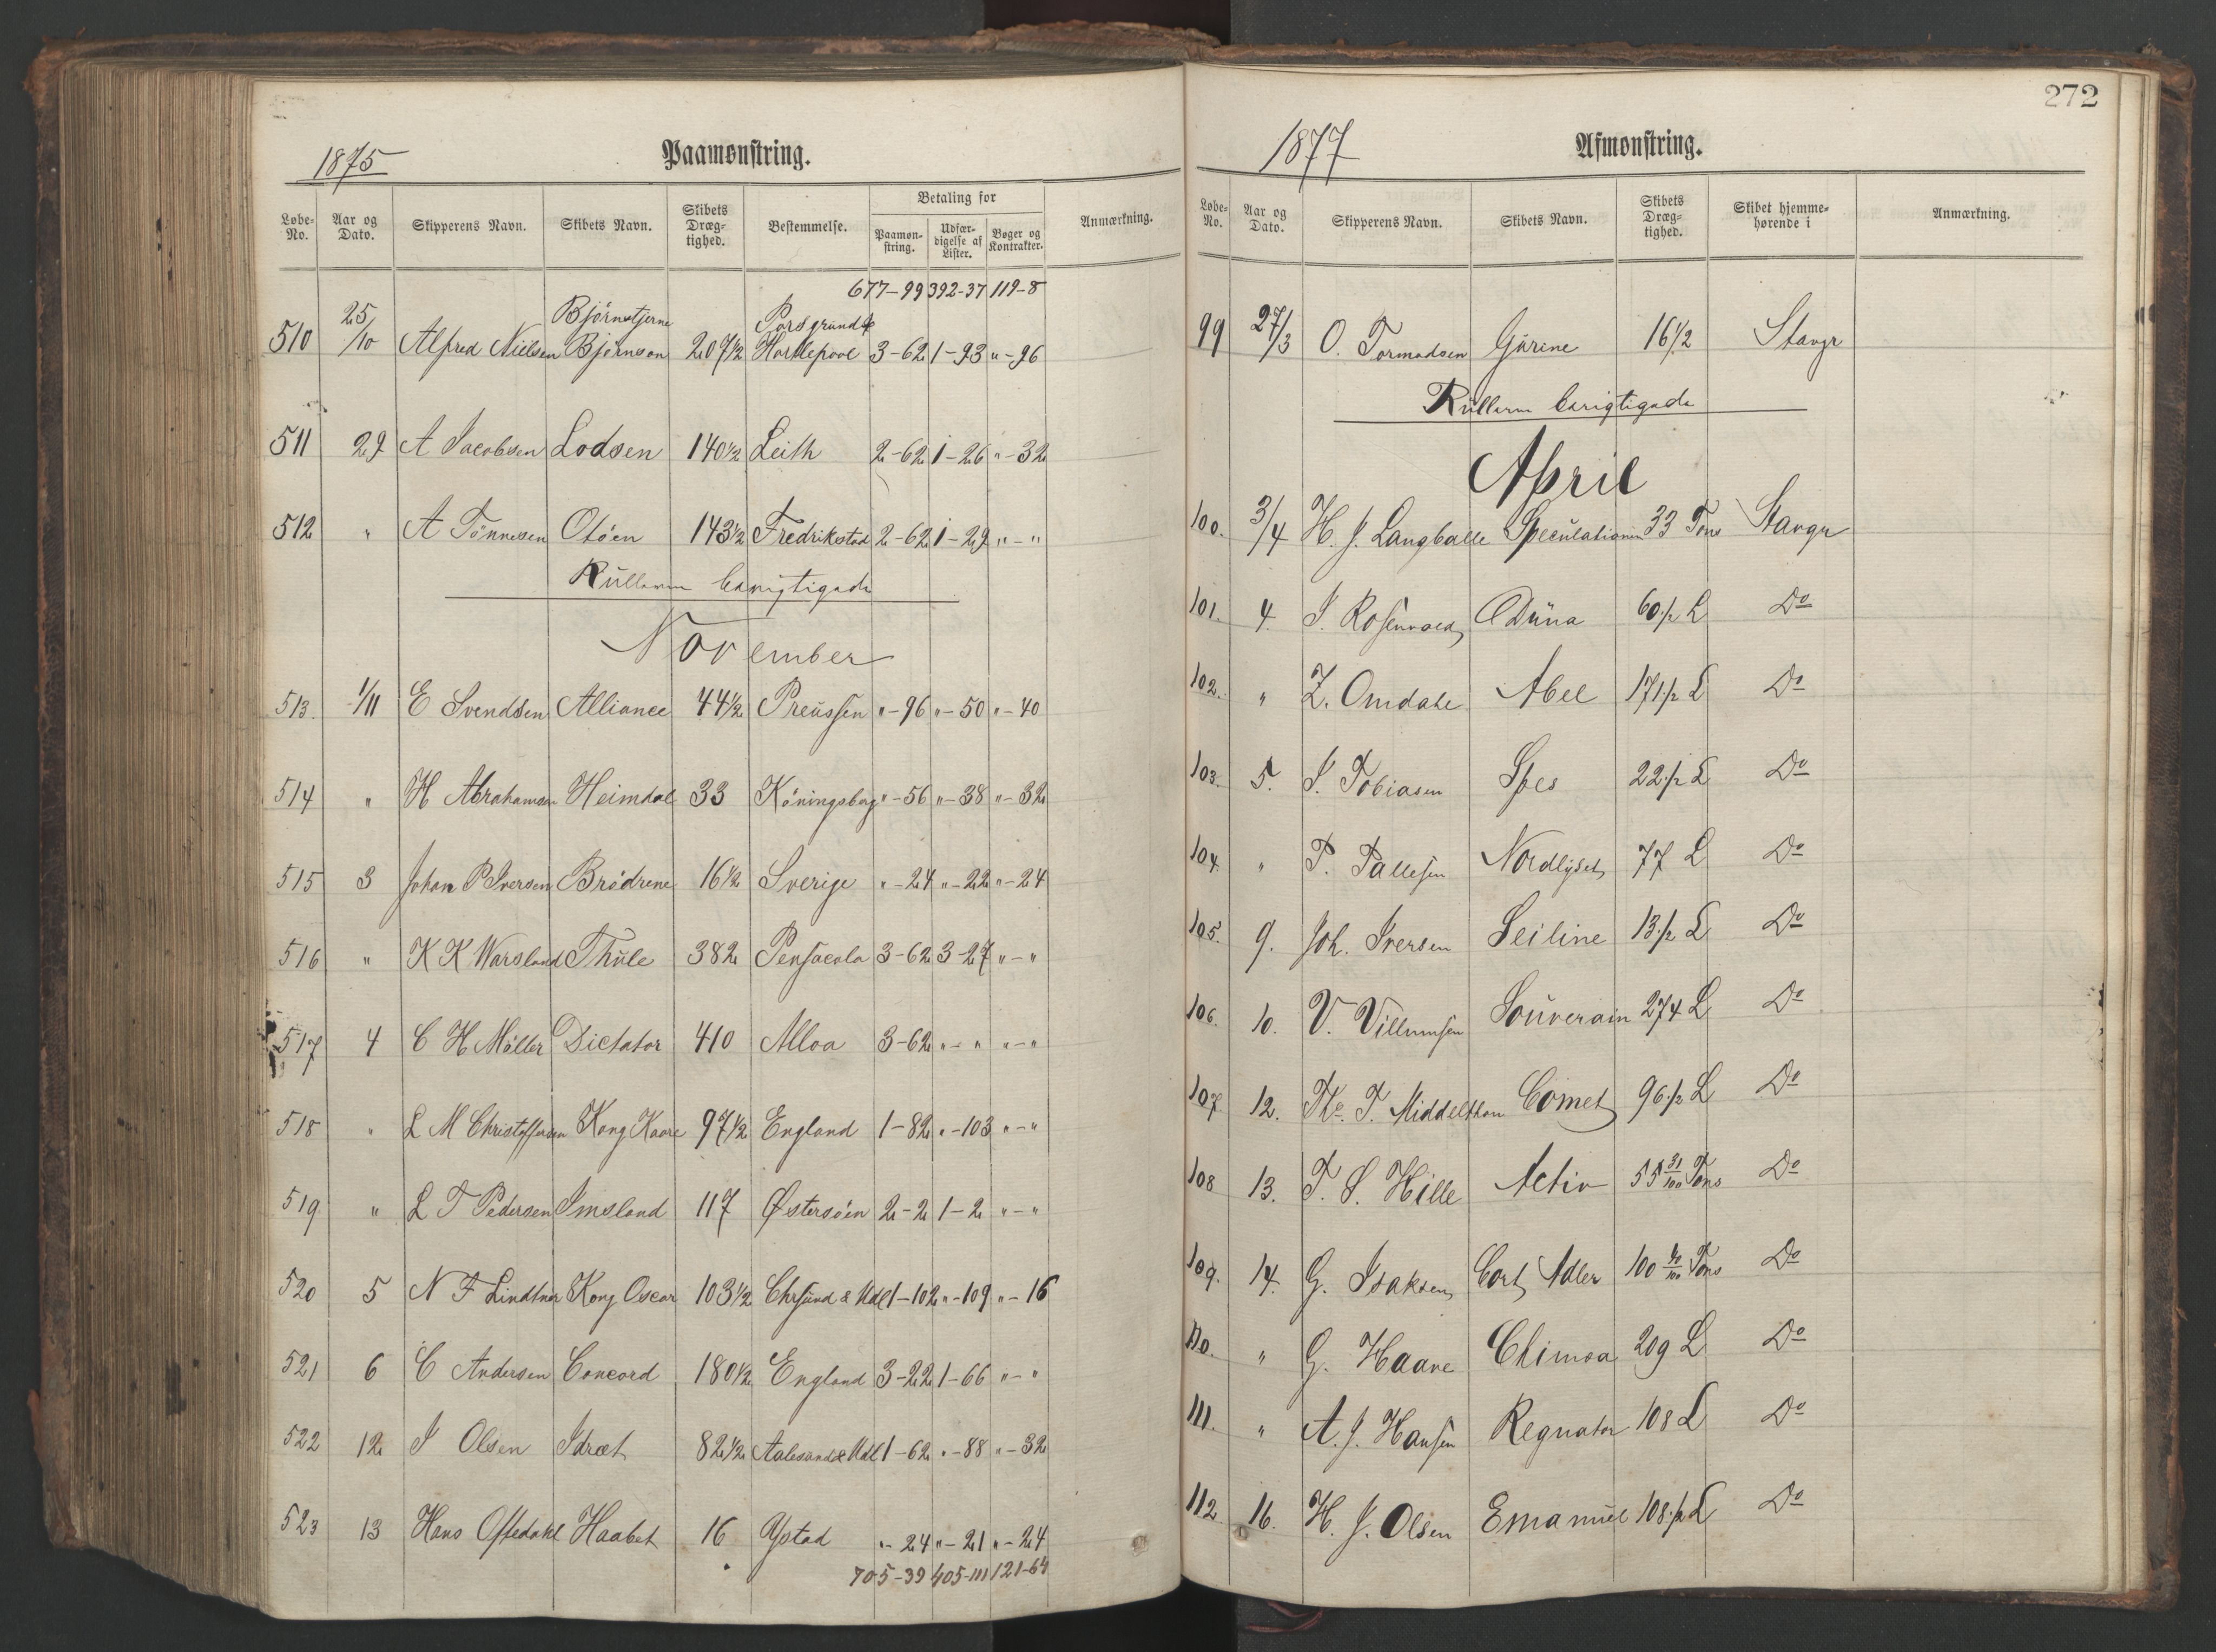 1875
Paamønstring.
Løbe-No. Aar og Dato. Skipperens Navn. Skibets Navn. Skibets Dræg-tighed. Bestemmelse. Betaling for Paamøn-string. Udfær-digelse af Lister. Bøger og Kontrakter. Anmærkning.
677-99 392-37 119-8
510 25/10 Alfred Nielsen Björnstjerne Björnson 207½ Porsgrund & Hartlepool 3-62 1-93 "-96
511 29 A Jacobsen Lodsen 140½ Leith 2-62 1-26 "-32
512 " A Tönnesen Otöen 143½ Fredrikstad 2-62 1-29 "-"
Rullerne berigtigede
November
513. 1/11 E Svendsen Alliance 44½ Preussen "-96 "-50 "-40
514 " H Abrahamsen Heimdal 33 Köningsberg "-56 "-38 "-32
515 3 Johan P Iversen Brödrene 16½ Sverige "-24 "-22 "-24
516 " K K Warsland Thule 382 Pensacola 3-62 3-27 "-"
517 4 C H Möller Dictator 410 Alloa 3-62 "-" "-"
518 " L M Christoffersen Kong Kaare 97½ England 1-82 "-103 "-"
519 " L T Pedersen Imsland 117 Østersöen 2-2 1-2 "-"
520 5 N F Lindtner Kong Oscar 103½ Chrsund & Udl 1-102 "-109 "-16
521 6 C Andersen Concord 180½ England 3-22 1-66 "-"
522 12 J Olsen Idræt 82½ Aalesund & Udl 1-62 "-88 "-32
523 13 Hans Oftedahl Haabet 16 Ystad "-24 "-21 "-24
705-39 405-111 121-64
272
1877
Afmønstring.
Løbe-No. Aar og Dato. Skipperens Navn. Skibets Navn. Skibets Dræg-tighed. Skibet hjemme-hørende i Anmærkning.
99 27/3 O. Tormodsen Gurine 16½ Stavgr
Rullerne berigtigede
April
100. 3/4 H. J. Langballe Speculationen 33 Tons Stavgr
101. 4. J. Rosenvald Düna 60½ L Do
102. " Z. Omdahl Abel 171½ L Do
103. 5. S. Tobiasen Spes 22½ L Do
104. " P. Pallesen Nordlyset 77 L Do
105. 9. Joh. Iversen Seiline 13½ L Do
106. 10. V. Villumsen Souverain 274 L Do
107. 12. Th. T. Middelthon Comet 96½ L Do
108 13. T. S. Hille Activ 55 31/100 Tons Do
109. 14. G. Isaksen Cort Adler 100 40/100 Tons Do
110. " G. Haave Chimoa 209 L Do
111. " A. J. Hansen Regnator 108 L Do
112 16. H. J. Olsen Emanuel 108½ L Do